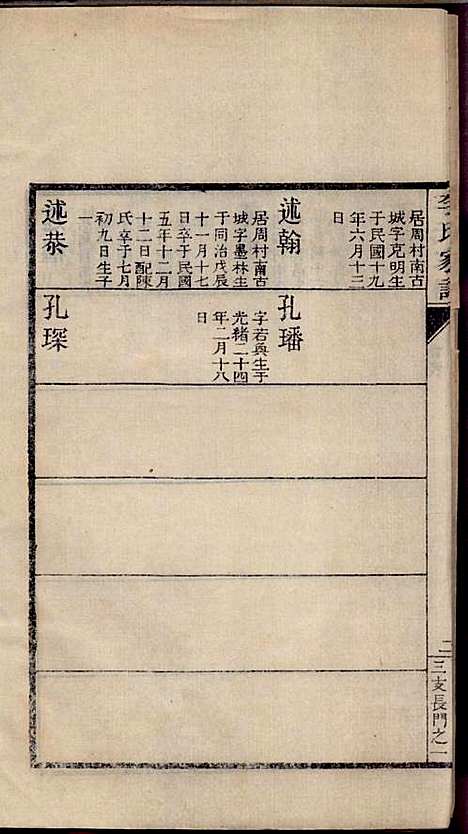 李氏家譜
居周村南古
城字克明生
于民國十九
年六月十三
日
述翰
居周村南古
城字墨林生
于同治戊辰
十一月十七
日卒于民國
五年十二月
十二日配陳
氏卒于七月
初九日生子
一
述恭
孔璠
字若與生于
光緒二十四
年二月十八
日
孔琛
二
三支長門之一